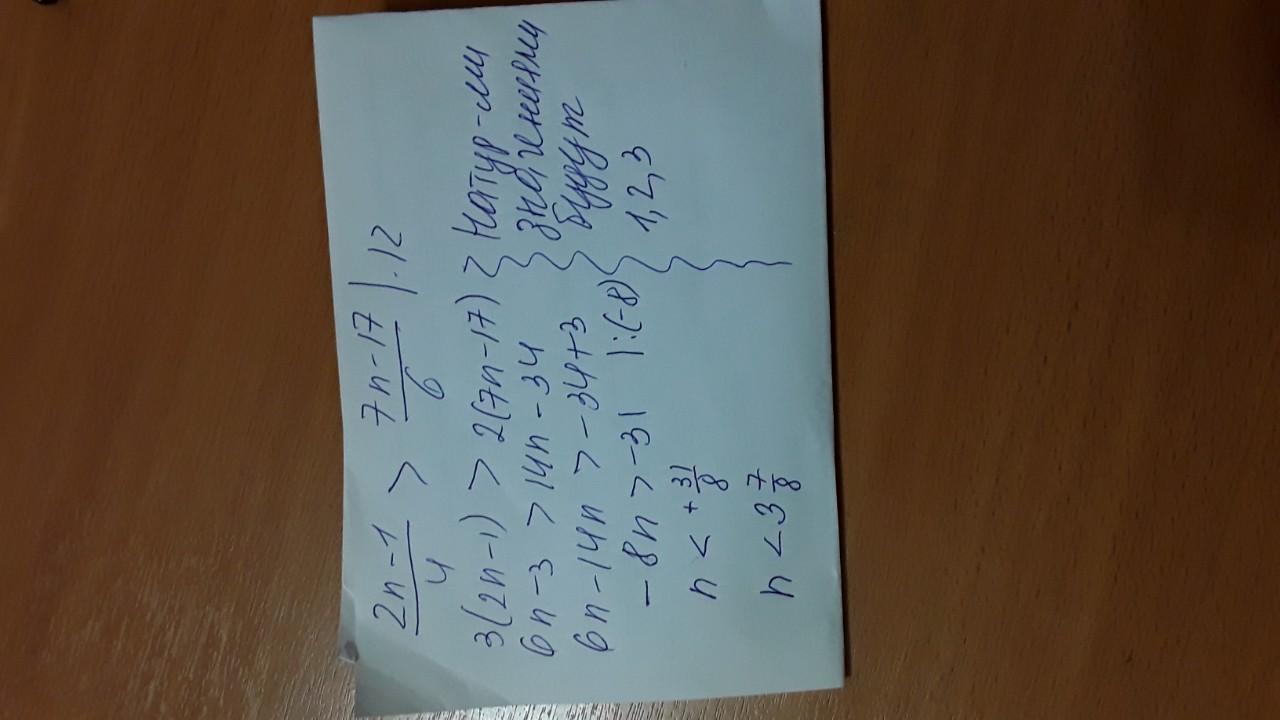 2n-1/4 > 7n-17/6 |·12
3(2n-1) > 2(7n-17)
6n-3 > 14n-34
6n-14n > -34+3
-8n > -31 |:(-8)
n < +31/8
n < 3 7/8
Натур-ми
значениями
будут
1,2,3